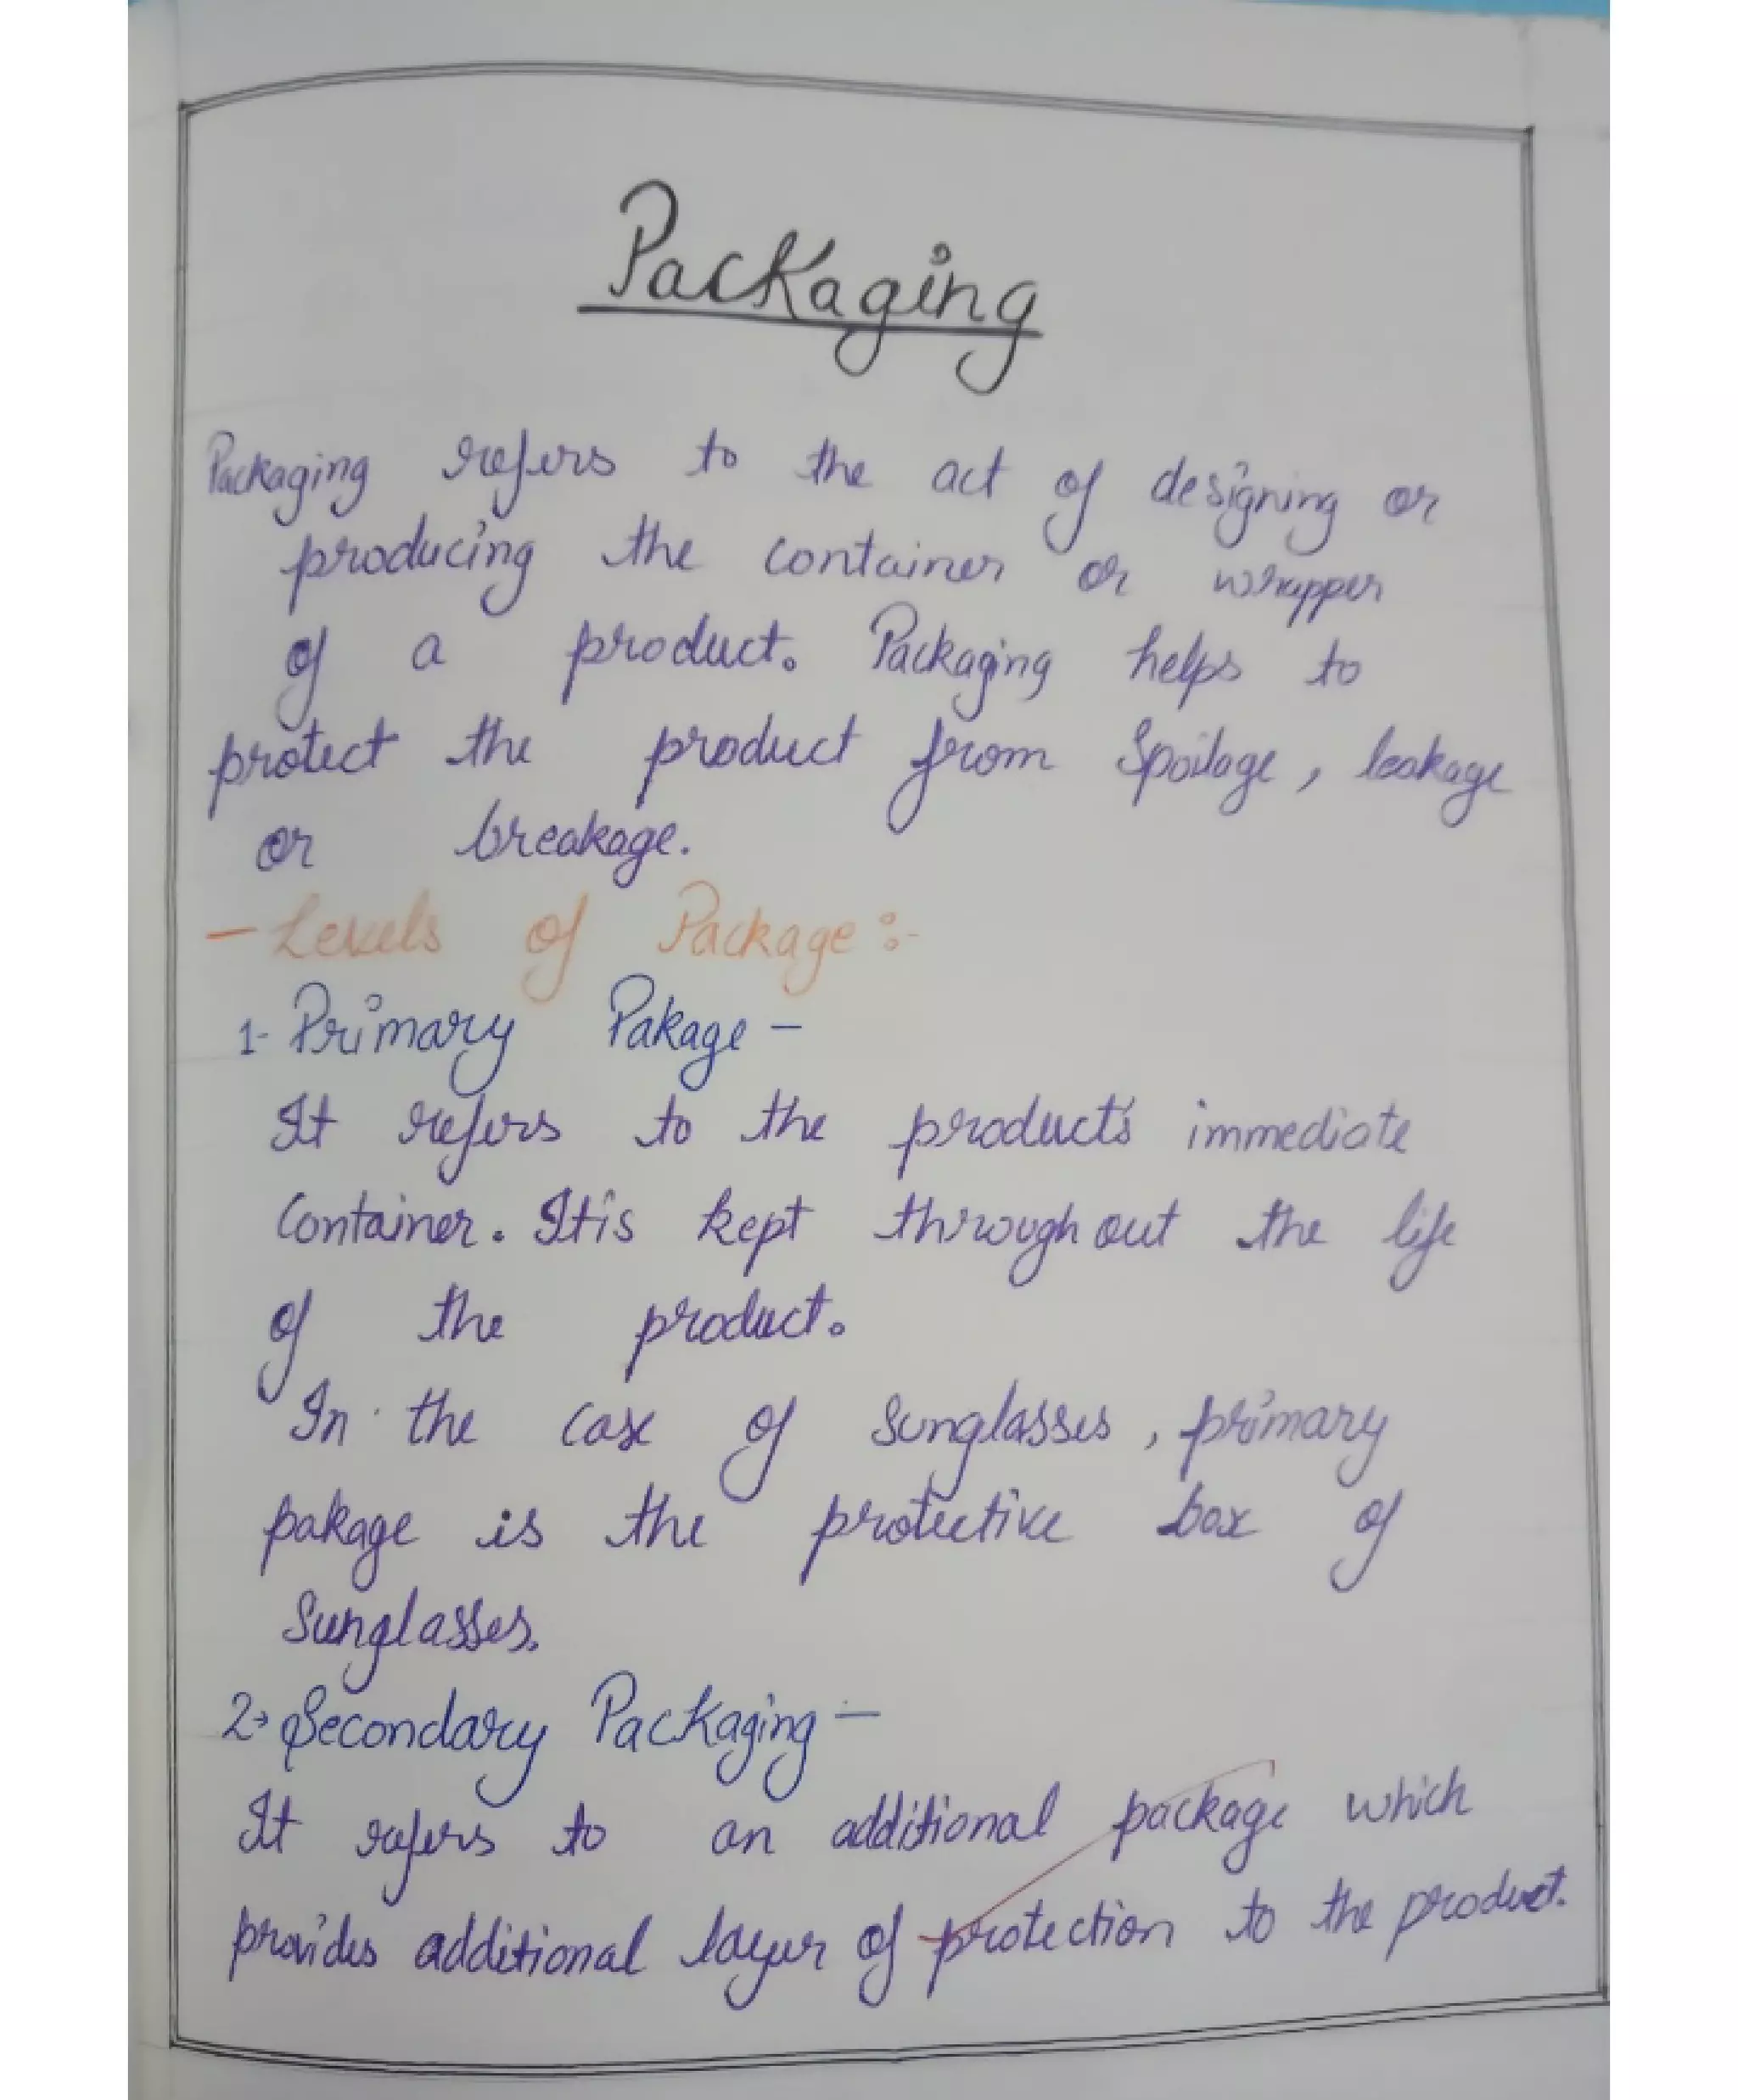 Packaging
Packaging refers to the act of designing or
producing the container or wrapper
of a product. Packaging helps to
protect the product from Spoilage, leakage
or breakage.
- Levels of Package :-
1- Primary Pakage -
It refers to the product's immediate
Container. Itis kept throughout the life
of the product.
In the case of Sunglasses, primary
pakage is the protective box of
Sunglasses.
2→ Secondary Packaging -
It refers to an additional package which
provides additional layer of protection to the product.